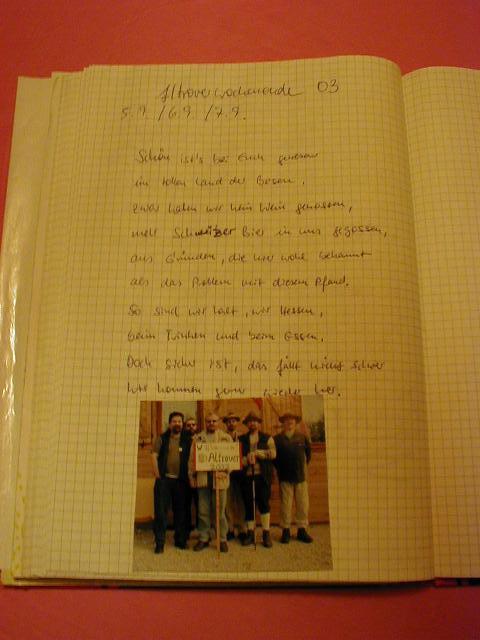 Altroverwochenende 03
5.9. / 6.9. / 7.9.
Schön ist's bei Euch gewesen
im tollen Land der Besen.
Zwar haben wir kein Wein genossen,
mehr Schweizer Bier in uns gegossen,
aus Gründen, die hier wohl bekannt
als das Problem mit diesem Pfand.
So sind wir halt, wir Hessen,
beim Trinken und beim Essen.
Doch sicher ist, das fällt nicht schwer
wir kommen gerne wieder her.
Altrover